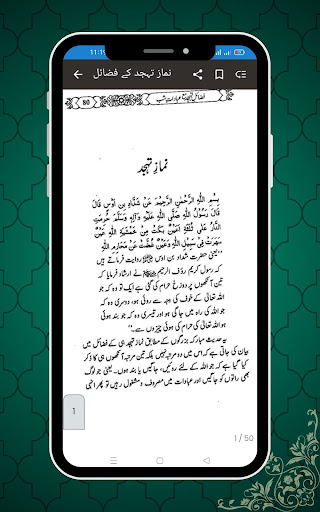 11:19
نماز تہجد کے فضائل
80
فضائل تہجد و عبادات شب
نمازِ تہجد
بِسْمِ اللّٰهِ الرَّحْمٰنِ الرَّحِيْمِ عَنْ شَدَّادِ بْنِ اَوْسٍ قَالَ
قَالَ رَسُوْلُ اللّٰهِ صَلَّى اللّٰهُ عَلَيْهِ وَآلِهِ وَسَلَّمَ حُرِّمَتِ
النَّارُ عَلٰى ثَلٰثَةِ اَعْيُنٍ بَكَتْ مِنْ خَشْيَةِ اللّٰهِ عَيْنٌ
سَهِرَتْ فِيْ سَبِيْلِ اللّٰهِ وَعَيْنٌ غُضَّتْ عَنْ مَحَارِمِ اللّٰهِ
"یعنی حضرت شداد بن اوس روایت فرماتے ہیں
کہ رسول کریم رؤف الرحیم ﷺ نے ارشاد فرمایا کہ
تین آنکھوں پر دوزخ حرام کی گئی ہے ایک تو وہ کہ جو
اللہ تعالیٰ کے خوف کی وجہ سے روئی ہو، دوسری وہ کہ
جو اللہ کی راہ میں جاگی ہو اور تیسری وہ کہ جو بند ہوئی
ہو اللہ تعالیٰ کی حرام کی ہوئی چیزوں سے۔"
یہ حدیث مبارکہ بزرگوں کے مطابق نماز تہجد ہی کے فضائل میں
بیان کی جاتی ہے کہ اس میں دو مرتبہ نہیں بلکہ تین مرتبہ آنکھوں ہی کا ذکر
کیا گیا ہے کہ جو اللہ کے لئے روئیں، جاگیں یا بند ہوئیں۔ یعنی جو لوگ
بھی راتوں کو جاگیں اور عبادات میں مصروف و مشغول رہیں تو پھر انہی
1
1 / 50